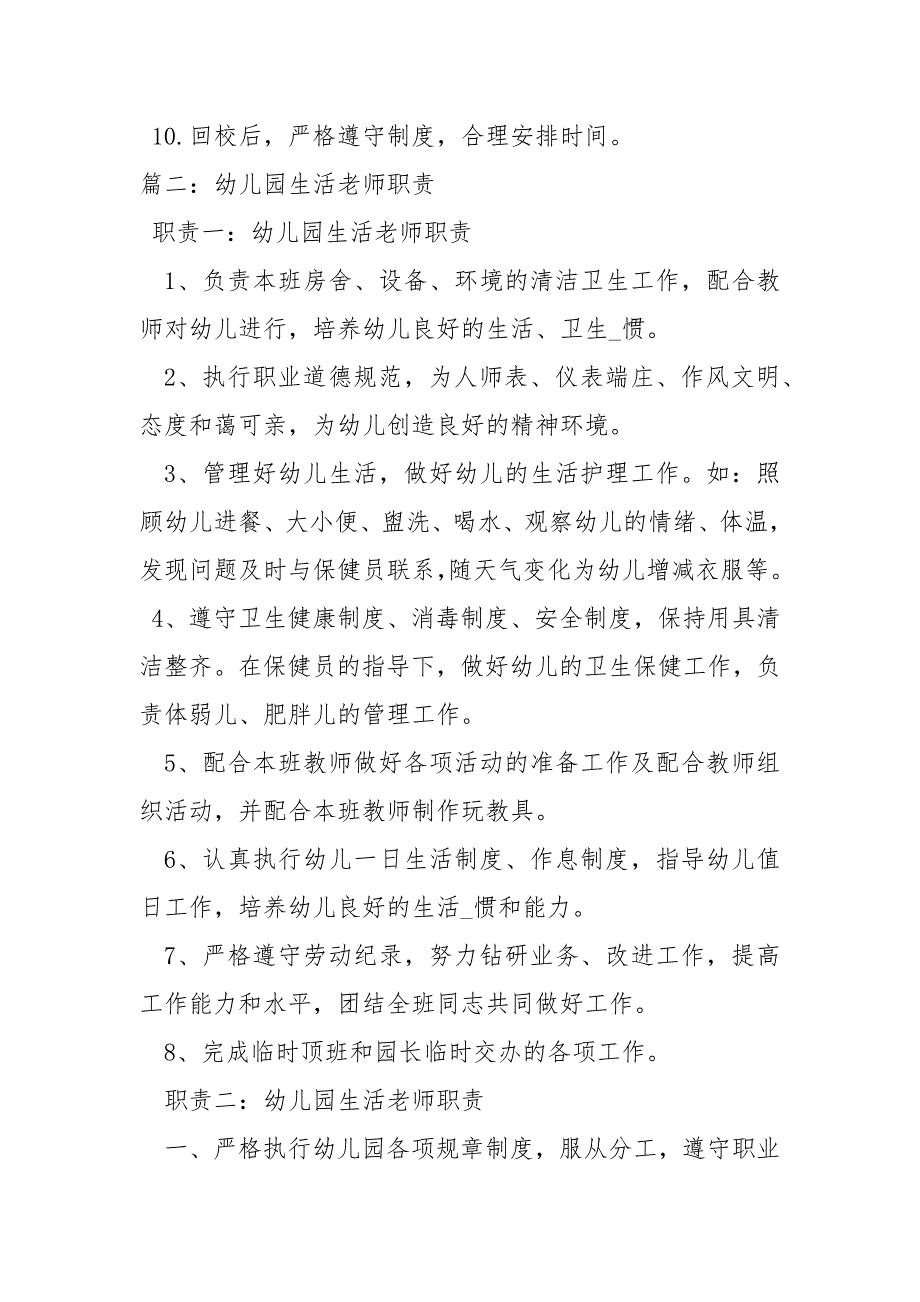 10.回校后，严格遵守制度，合理安排时间。
篇二：幼儿园生活老师职责
职责一：幼儿园生活老师职责
1、负责本班房舍、设备、环境的清洁卫生工作，配合教
师对幼儿进行，培养幼儿良好的生活、卫生_惯。
2、执行职业道德规范，为人师表、仪表端庄、作风文明、
态度和蔼可亲，为幼儿创造良好的精神环境。
3、管理好幼儿生活，做好幼儿的生活护理工作。如：照
顾幼儿进餐、大小便、盥洗、喝水、观察幼儿的情绪、体温，
发现问题及时与保健员联系，随天气变化为幼儿增减衣服等。
4、遵守卫生健康制度、消毒制度、安全制度，保持用具清
洁整齐。在保健员的指导下，做好幼儿的卫生保健工作，负
责体弱儿、肥胖儿的管理工作。
5、配合本班教师做好各项活动的准备工作及配合教师组
织活动，并配合本班教师制作玩教具。
6、认真执行幼儿一日生活制度、作息制度，指导幼儿值
日工作，培养幼儿良好的生活_惯和能力。
7、严格遵守劳动纪录，努力钻研业务、改进工作，提高
工作能力和水平，团结全班同志共同做好工作。
8、完成临时顶班和园长临时交办的各项工作。
职责二：幼儿园生活老师职责
一、严格执行幼儿园各项规章制度，服从分工，遵守职业